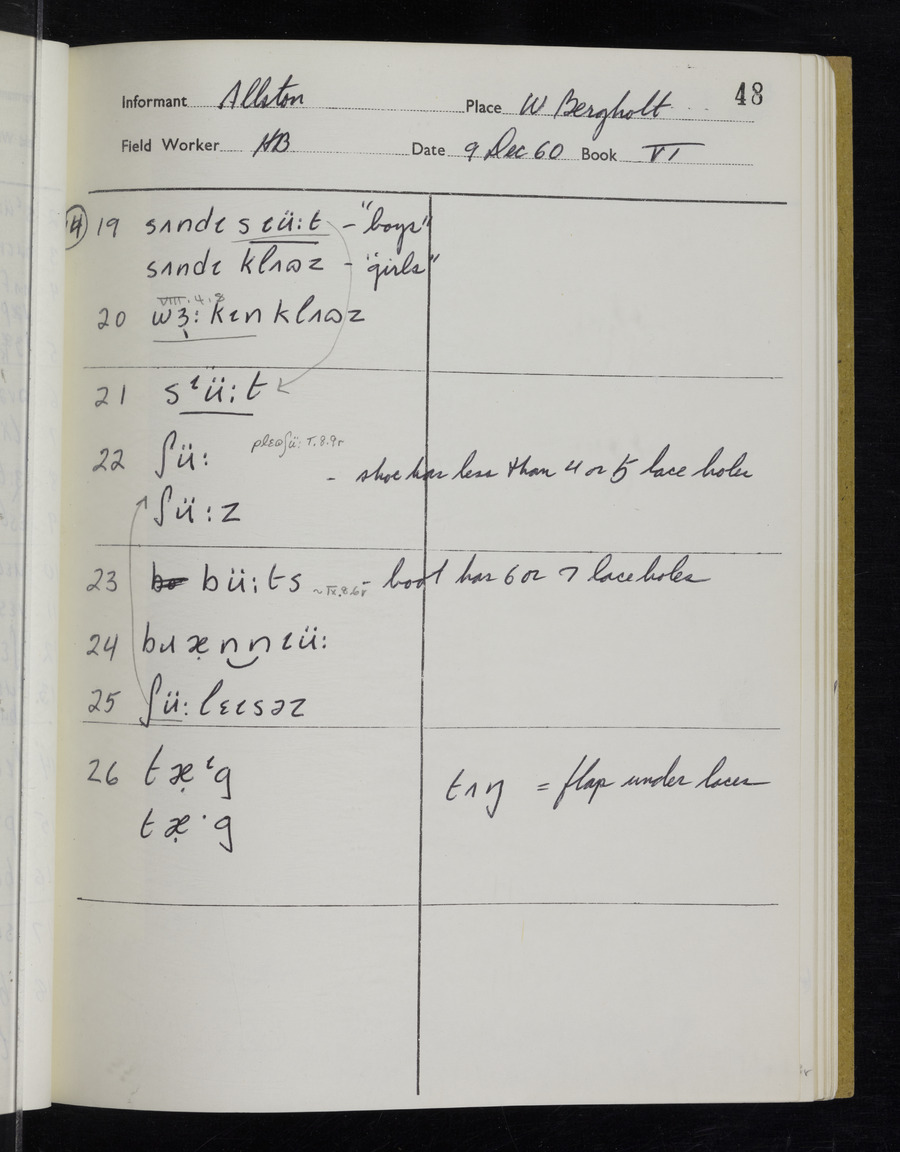 48
Informant Allston Place W Bergholt
Field Worker HB Date 9 Dec 60 Book VI
14 19 sʌndɩ sɩü:t - "boys"
sʌndɩ klʌɷz - "girls"
VIII.4.8
20 wɜ̣: kɩn klʌɷz
21 sᶥü:t
22 ʃü: plɛɷʃü: V.8.9r
- shoe has less than 4 or 5 lace holes
ʃü:z
23 bü:ts ~ IX.8.6r - boot has 6 or 7 laceholes
24 bɹæ̣n‿nɩü:
25 ʃü: lɛɩsəz
26 tæ̣ᶥg
tʌŋ = flap under laces
tæ̣·g